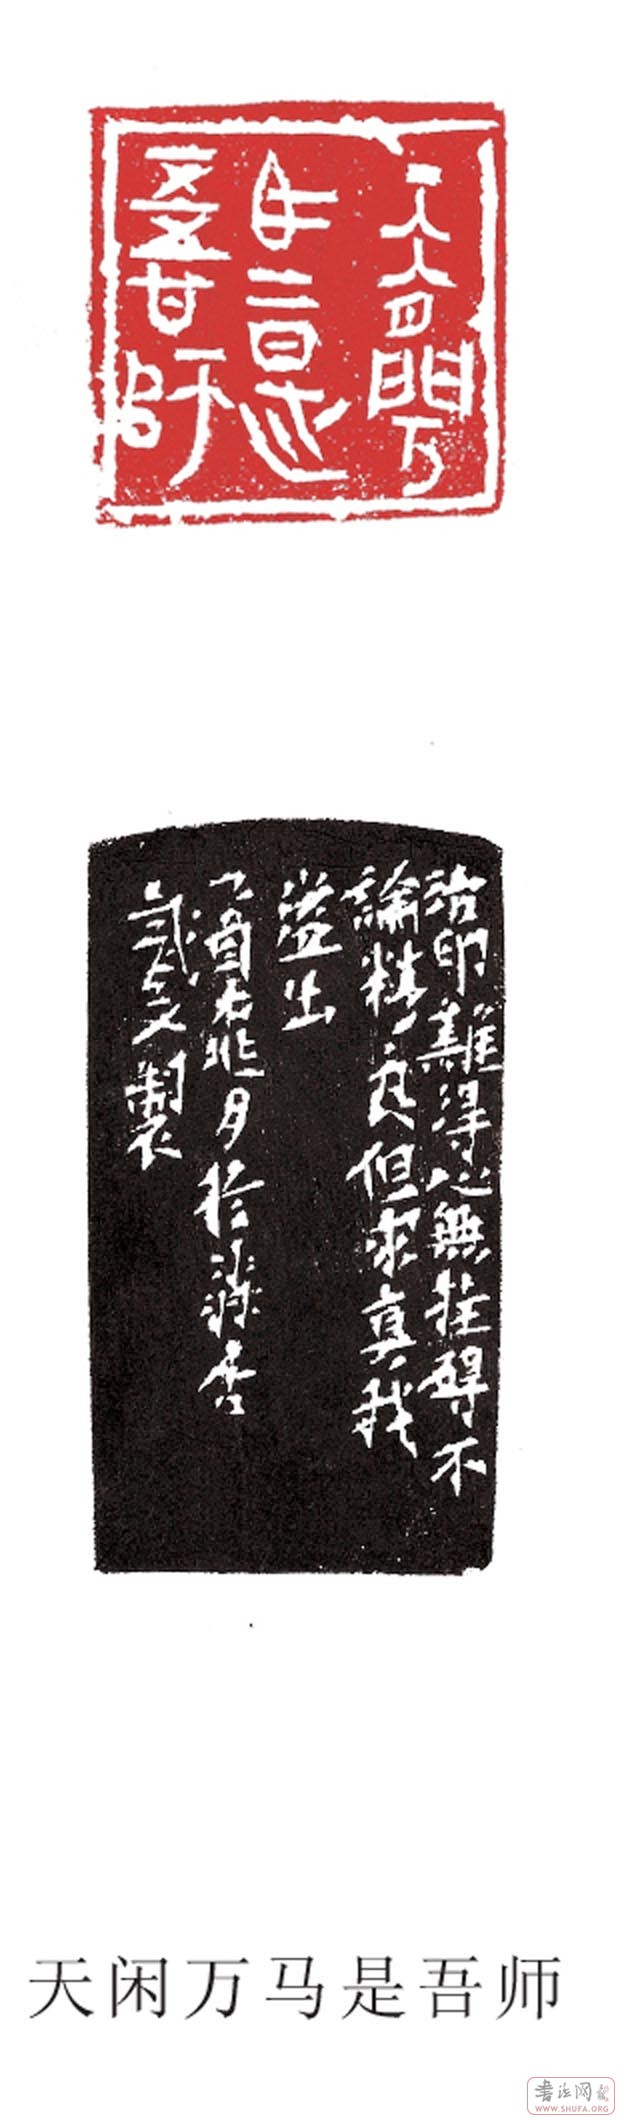 天閒万
馬是
吾師
治印難得心無掛碍不
論精良但求真我
溢出
乙酉杏月於
製
天闲万马是吾师
书法网
WWW.SHUFA.ORG